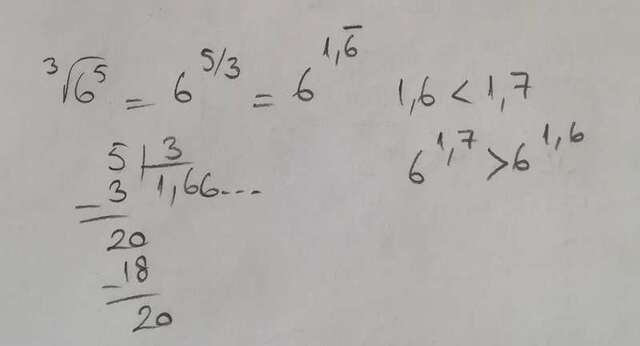 ³√6⁵ = 6^5/3 = 6^1,6̅
1,6 < 1,7
6^1,7 > 6^1,6
5 | 3
- 3 | 1,66...
20
- 18
20